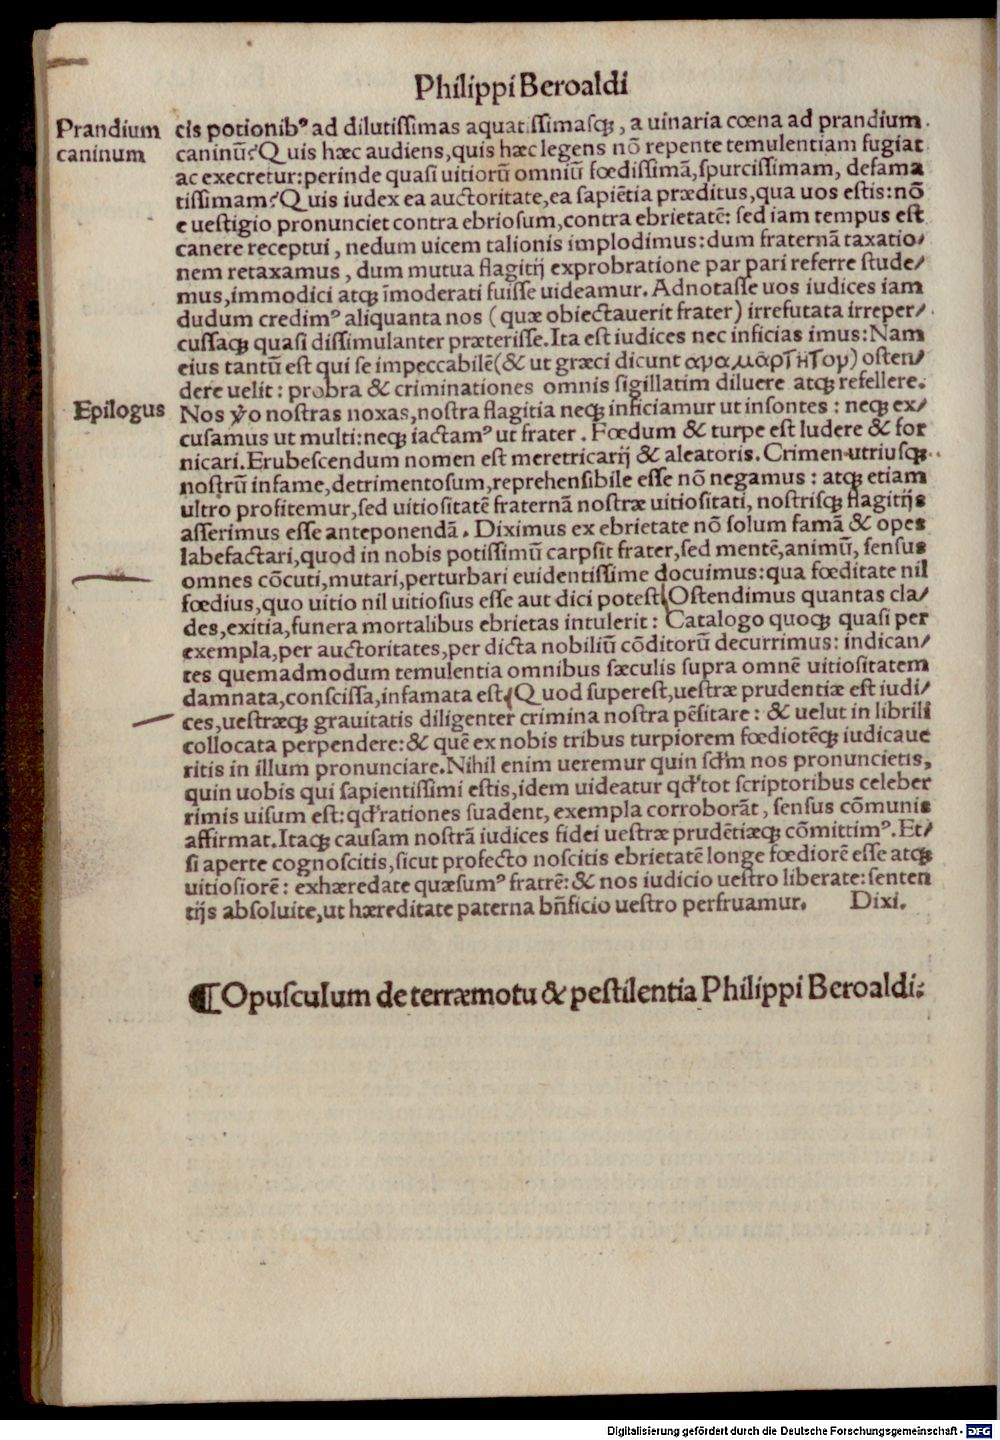 Philippi Beroaldi
Prandium
caninum
cis potionibꝰ ad dilutissimas aquatissimasqȝ, a uinaria cœna ad prandium
caninū? Quis hæc audiens, quis hæc legens nō repente temulentiam fugiat
ac execretur: perinde quasi uitiorū omniū fœdissimā, spurcissimam, defama
tissimam? Quis iudex ea auctoritate, ea sapiētia præditus, qua uos estis: nō
e uestigio pronunciet contra ebriosum, contra ebrietatē: sed iam tempus est
canere receptui, nedum uicem talionis implodimus: dum fraternā taxatio/
nem retaxamus, dum mutua flagitij exprobratione par pari referre stude/
mus, immodici atqȝ īmoderati fuisse uideamur. Adnotasse uos iudices iam
dudum credimꝰ aliquanta nos (quæ obiectauerit frater) irrefutata irreper/
cussaqȝ quasi dissimulanter præterisse. Ita est iudices nec inficias imus: Nam
eius tantū est qui se impeccabilē (& ut græci dicunt αναμαρτητον) osten/
dere uelit: probra & criminationes omnis sigillatim diluere atqȝ refellere.
Epilogus
Nos ꝟo nostras noxas, nostra flagitia neqȝ inficiamur ut insontes: neqȝ ex/
cusamus ut multi: neqȝ iactamꝰ ut frater. Fœdum & turpe est ludere & for
nicari. Erubescendum nomen est meretricarij & aleatoris. Crimen utriusqȝ
nostrū infame, detrimentosum, reprehensibile esse nō negamus: atqȝ etiam
ultro profitemur, sed uitiositatē fraternā nostræ uitiositati, nostrisqȝ flagitijs
asserimus esse anteponendā. Diximus ex ebrietate nō solum famā & opes
labefactari, quod in nobis potissimū carpsit frater, sed mentē, animū, sensus
omnes cōcuti, mutari, perturbari euidentissime docuimus: qua fœditate nil
fœdius, quo uitio nil uitiosius esse aut dici potest. Ostendimus quantas cla/
des, exitia, funera mortalibus ebrietas intulerit: Catalogo quoqȝ quasi per
exempla, per auctoritates, per dicta nobiliū cōditorū decurrimus: indican/
tes quemadmodum temulentia omnibus sæculis supra omnē uitiositatem
damnata, conscissa, infamata est. Quod superest, uestræ prudentiæ est iudi/
ces, uestræqȝ grauitatis diligenter crimina nostra pēsitare: & uelut in librili
collocata perpendere: & quē ex nobis tribus turpiorem fœdiotēqȝ iudicaue
ritis in illum pronunciare. Nihil enim ueremur quin scđm nos pronuncietis,
quin uobis qui sapientissimi estis, idem uideatur qđ tot scriptoribus celeber
rimis uisum est: qđ rationes suadent, exempla corroborāt, sensus cōmunis
affirmat. Itaqȝ causam nostrā iudices fidei uestræ prudētiæqȝ cōmittimꝰ. Et/
si aperte cognoscitis, sicut profecto noscitis ebrietatē longe fœdiorē esse atqȝ
uitiosiorē: exhæredate quæsumꝰ fratrē: & nos iudicio uestro liberate: senten
tijs absoluite, ut hæreditate paterna bn̄ficio uestro perfruamur. Dixi.
¶ Opusculum de terræmotu & pestilentia Philippi Beroaldi.
Digitalisierung gefördert durch die Deutsche Forschungsgemeinschaft - DFG